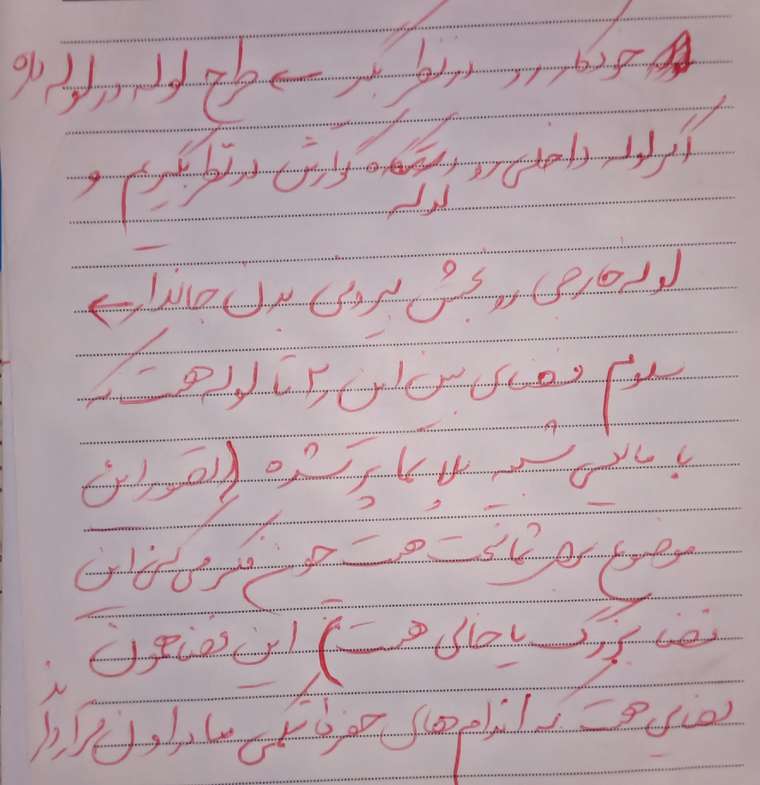 خودکار رو در نظر بگیر ← طرح لوله در لوله داره
اگر لوله داخلی رو لوله گوارش در نظر بگیریم و
لوله خارجی رو بخش بیرونی بدن جاندار ←
سلوم فضای بین این ۲ تا لوله هست که
با مایعی شبیه پلاسما پر شده (تصور این
موضوع برای شما سخت هست چون فکر می کنی این
فضا بزرگ یا خالی هست) این فضا همون
فضایی هست که اندام های حفره شکمی ما در اون قرار دارن